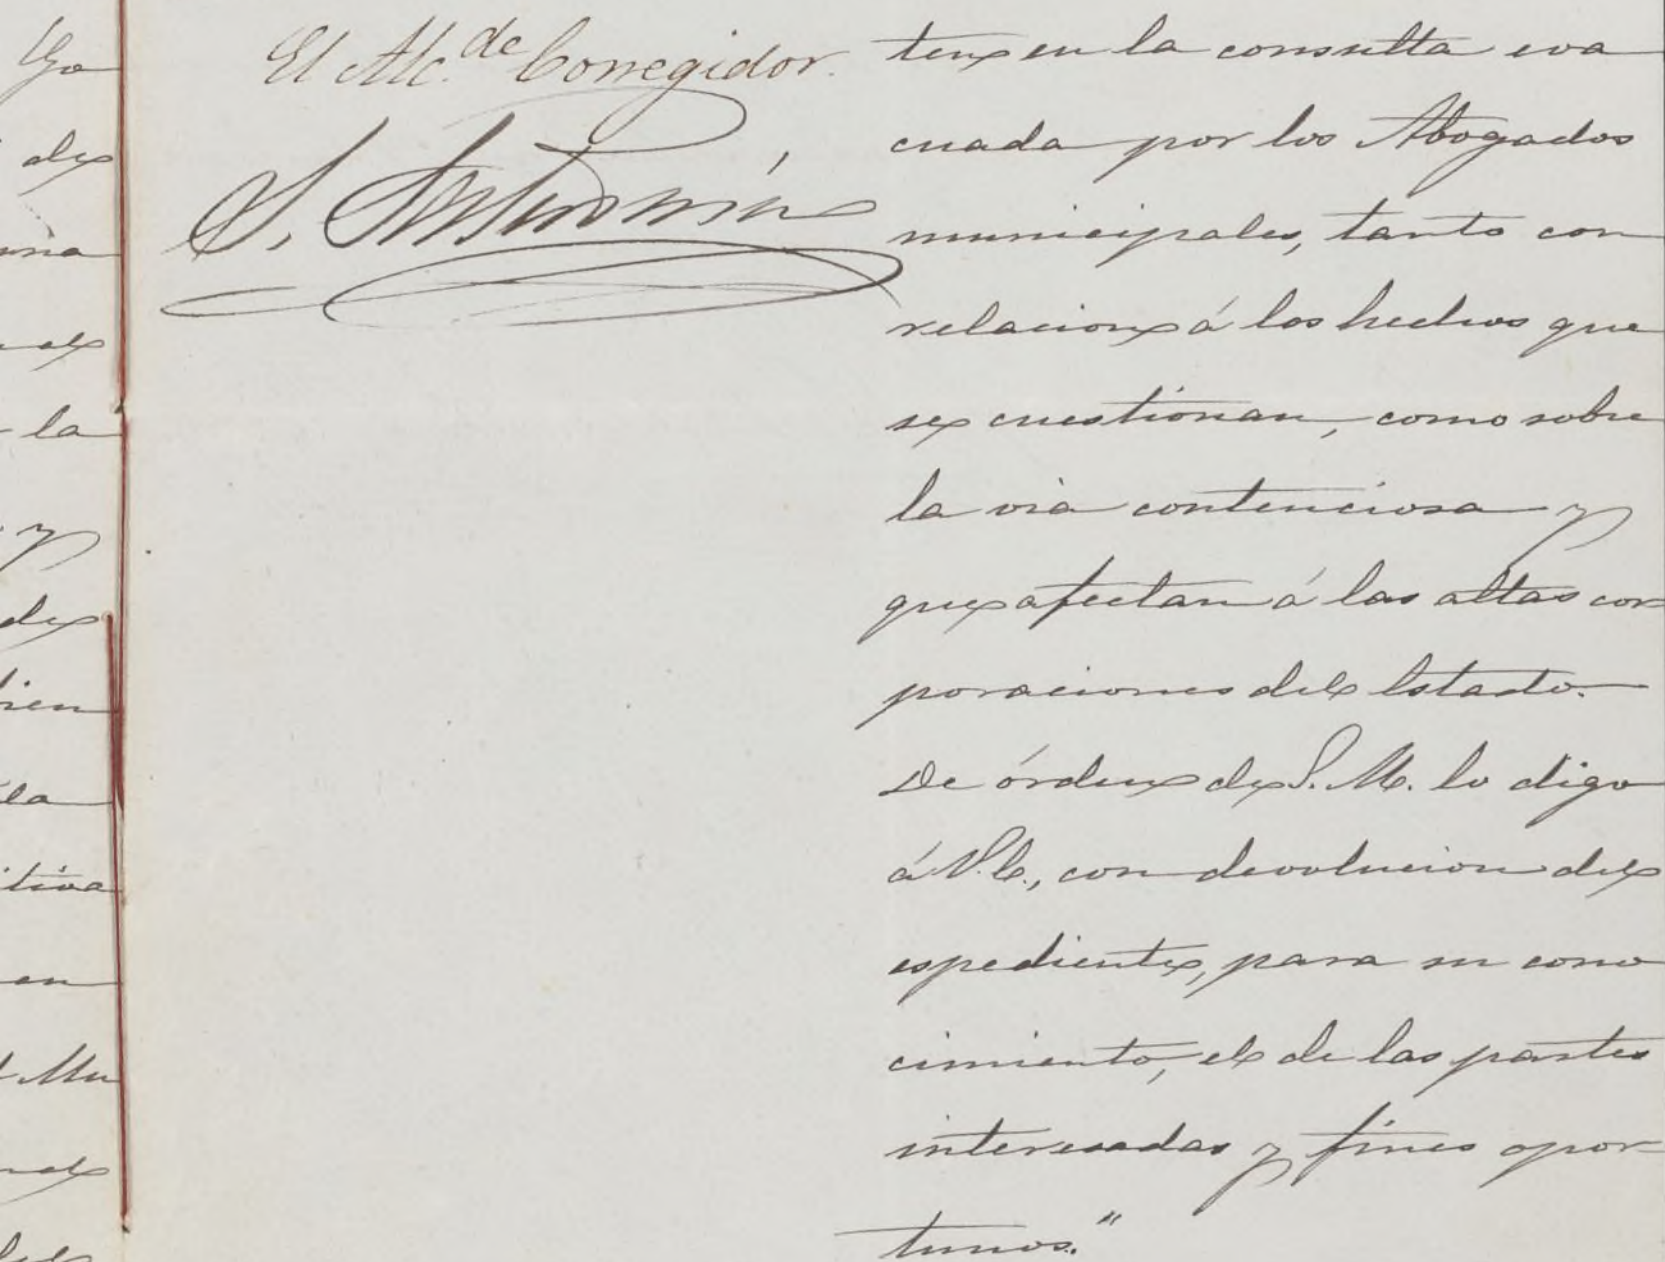 El Alc.de Corregidor.
ten en la consulta eva
cuada por los Abogados
municipales, tanto con
relacion á los hechos que
se cuestionan, como sobre
la via contenciosa y
que afectan á las altas cor
poraciones del Estado.
De órden de S. M. lo digo
á V. E., con devolucion del
espediente, para su cono
cimiento, el de las partes
interesadas y fines opor
tunos."
de
la
y
de
la
en